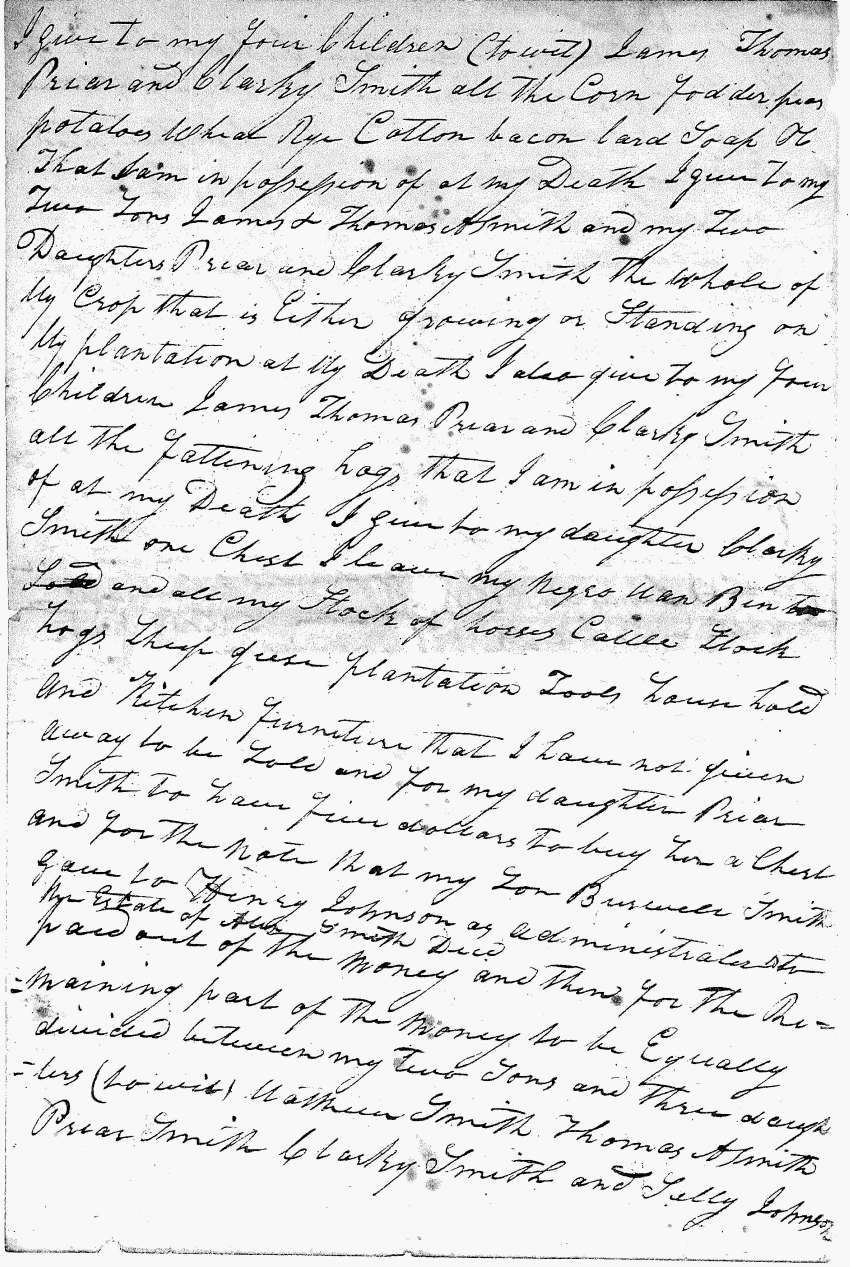 I give to my four Children (to wit) James Thomas
Priar and Clarky Smith all the Corn fodder peas
potatoes Wheat Rye Cotton bacon lard Soap &c
That I am in possession of at my Death I give to my
Two Sons James & Thomas A Smith and my Two
Daughters Priar and Clarky Smith the whole of
My Crop that is Either growing or Standing on
My plantation at My Death I also give to my four
Children James Thomas Priar and Clarky Smith
all the fattening hogs that I am in possession
of at my Death I give to my daughter Clarky
Smith one Chest I leave my Negro Man Ben to
Sold and all my Stock of horses Cattle Stock
hogs Sheep geese plantation Tools house hold
and Kitchen furniture that I have not given
away to be Sold and for my daughter Priar
Smith to have five dollars to buy her a Chest
and for the Note that my Son Burwell Smith
gave to Henry Johnson as administrator to
the Estate of Smith Decd
paid out of the money and then for the Re=
=maining part of the money to be Equally
divided between my two Sons and three daugh
=ters (to wit) Matthew Smith Thomas A Smith
Priar Smith Clarky Smith and Selly Johnson